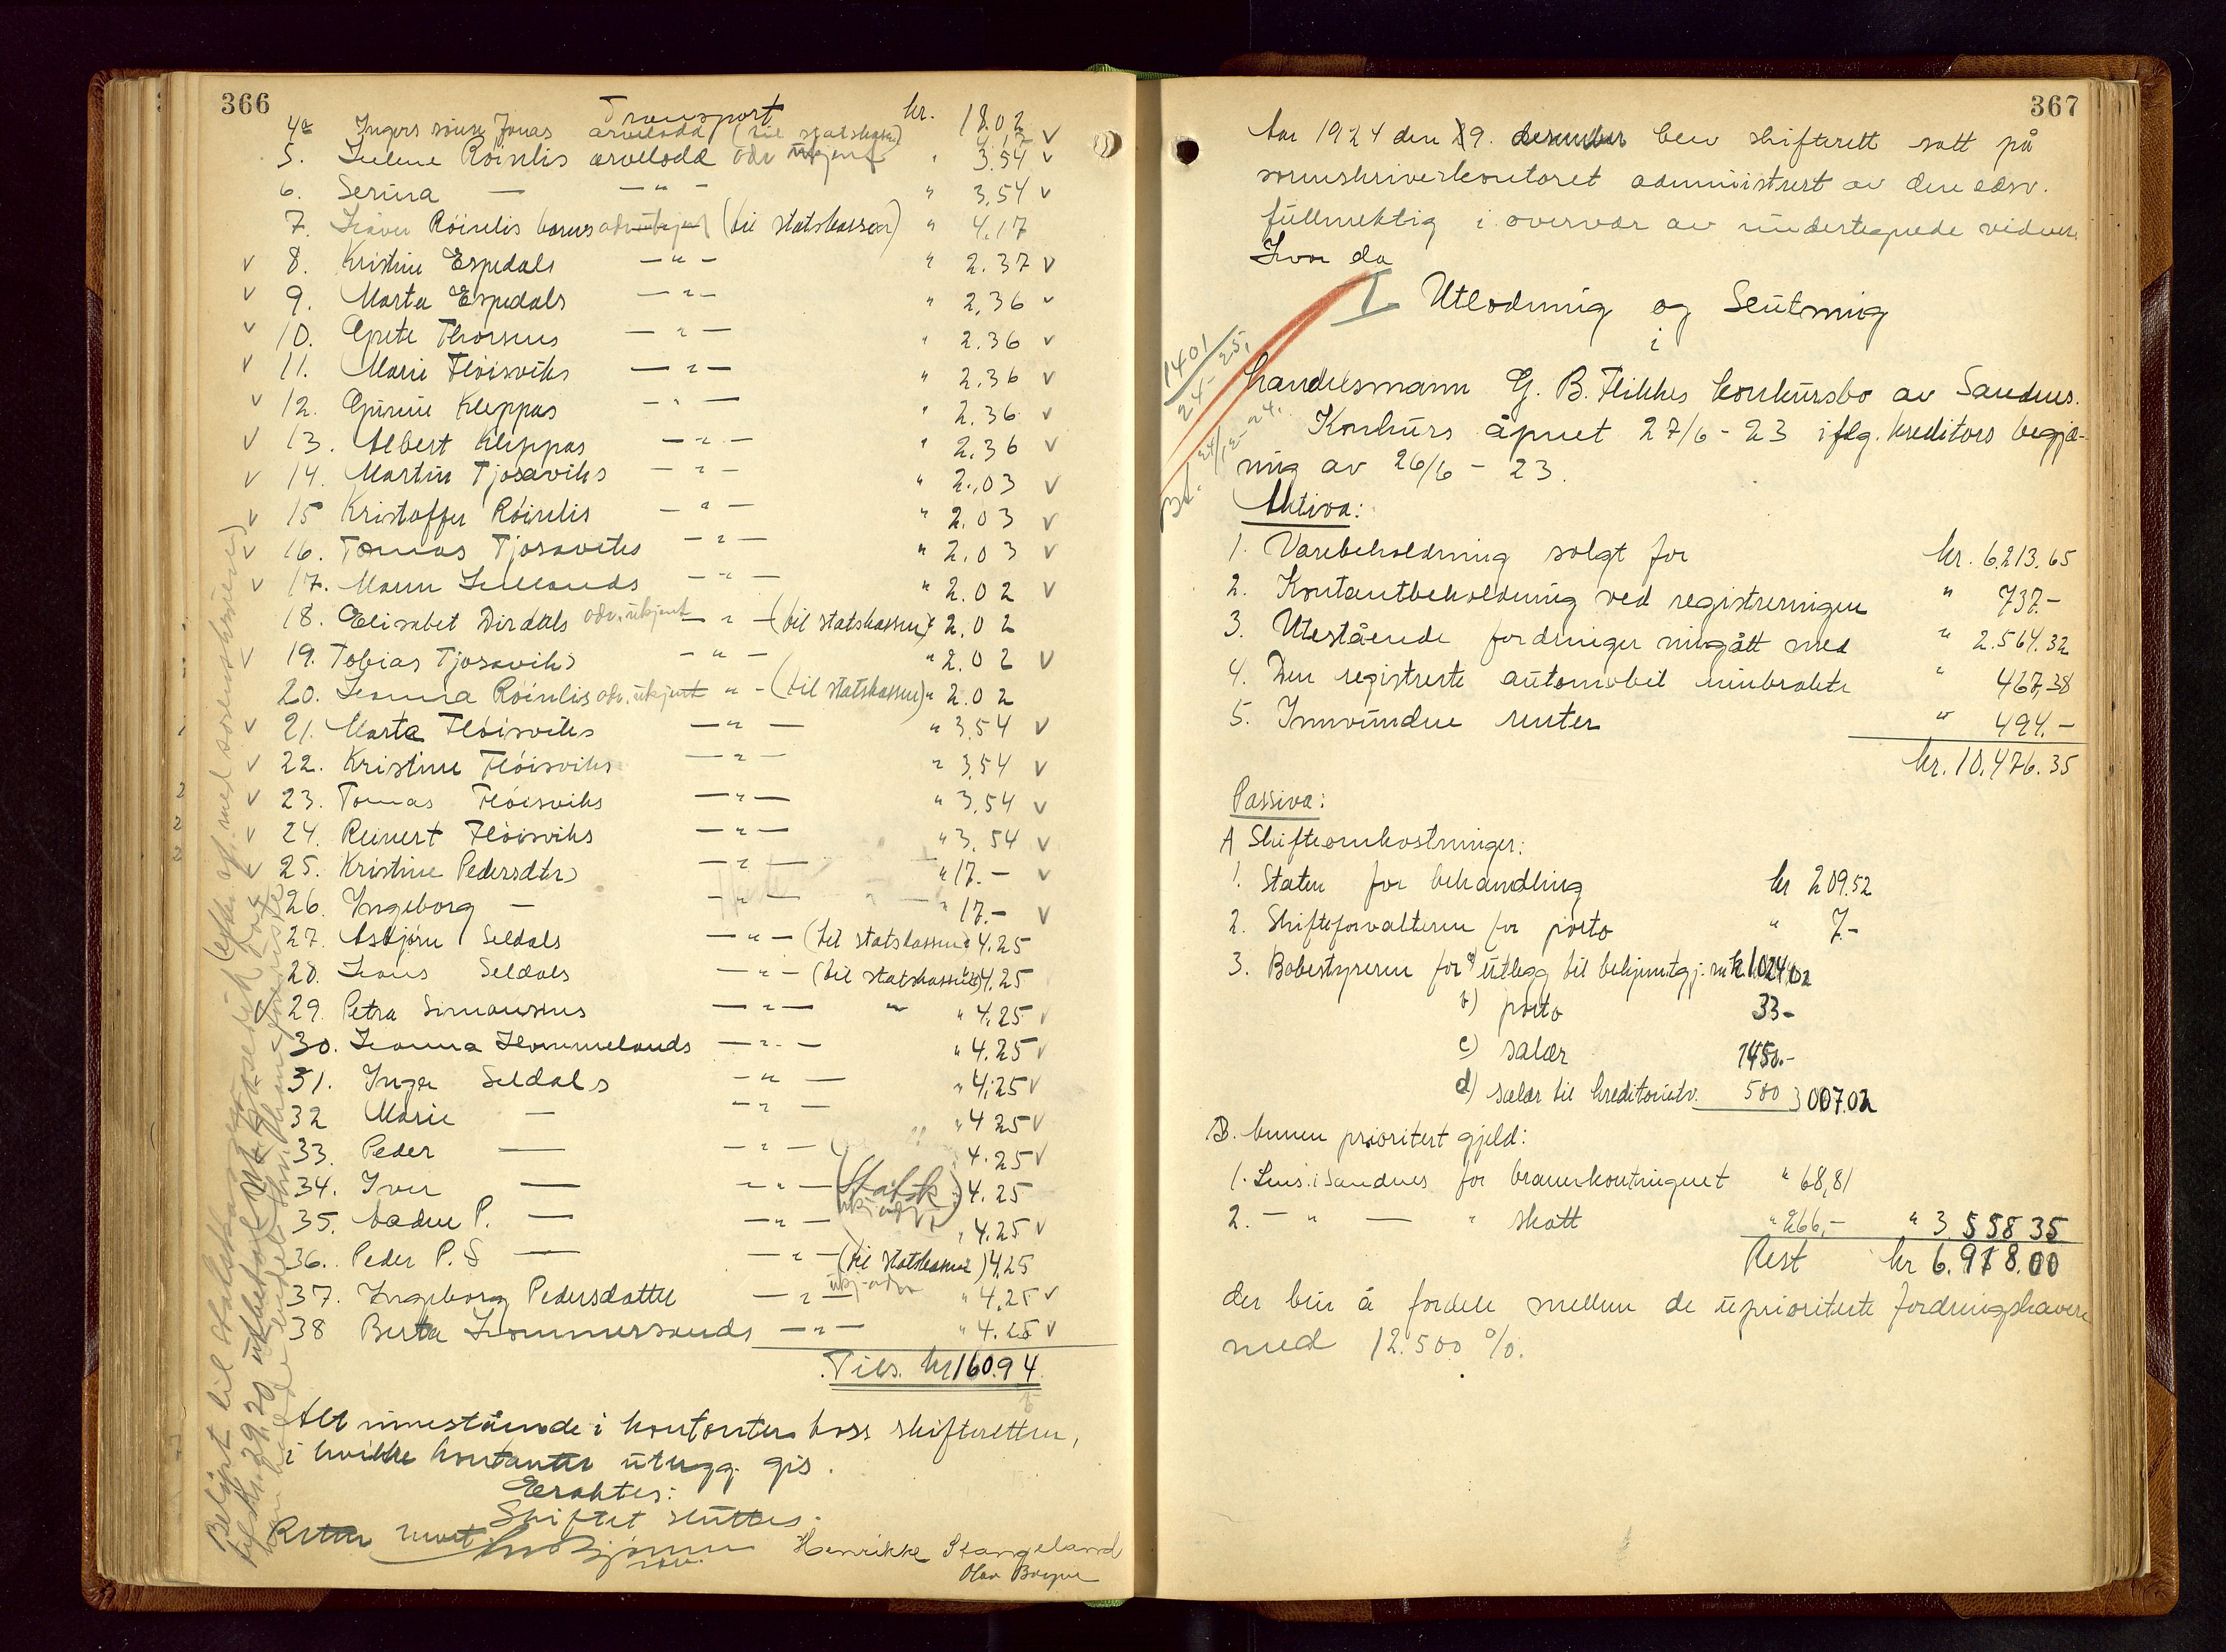 366
Transport kr. 18.02
4a Ingers sönn Jonas arvelodd (til statskassen) 4.17 v
5. Helene Röinlis arvelodd adr ukjent " 3.54 v
6. Serina — — " — " 3.54 v
7. Håver Röinlis barns adr ukjent (til statskassen) " 4.17
v 8. Kristine Espedals — " — " 2.37 v
v 9. Marta Espedals — " — " 2.36 v
v 10. Grete Thorsens — " — " 2.36 v
v 11. Marie Flöisviks — " — " 2.36 v
v 12. Gurine Kleppas — " — " 2.36 v
v 13. Albert Kleppas — " — " 2.36 v
v 14. Martin Tjosaviks — " — " 2.03 v
v 15 Kristoffer Röinlis — " — " 2.03 v
v 16. Tomas Tjosaviks — " — " 2.03 v
v 17. Maun — " — " 2.02 v
18. Elisabet Dirdals adr. ukjent — " — (til statskassen) " 2.02
v 19. Tobias Tjosaviks — " — " 2.02 v
20. Hanna Röinlis adr. ukjent " — (til statskassen) " 2.02
v 21. Marta Flöisviks — " — " 3.54 v
v 22. Kristine Flöisviks — " — " 3.54 v
v 23. Tomas Flöisviks — " — " 3.54 v
v 24. Reinert Flöisviks — " — " 3.54 v
v 25. Kristine Pedersdtrs — " — " 17.- v
26. Ingeborg — — " — " 17.- v
27. Asbjörn Seldals — " — (til statskassen) 4.25
28. Hans Seldals — " — (til statskassen) 4.25
29. Petra Simonsens — " — " 4.25 v
30. Hanna Hommelands — " — " 4.25 v
31. Inger Seldals — " — " 4.25 v
32 Marie — — " — " 4 25 v
33. Peder — — " — 4.25 v
34. Iver — — " — (Statsk.) 4.25
35. Aadne P. — — " — ukj adr " 4.25 v
36. Peder P. S — — " — (til statskassen) 4.25
37. Ingeborg Pedersdatter — " — ukj. adr " 4.25 v
38 Berta Hommersands — " — " 4.25 v
Tils. kr 160.94
Alt innestående i kontanter hoss skifteretten,
i hvilke kontanter utlegg gis.
Eraktes:
Skiftet sluttes.
Retten hevet
Henrikke Stangeland
Olav
367
Aar 1924 den 19. desember blev skifterett satt på
sorenskriverkontoret administrert av den edsv.
fullmektig i overvær av undertegnede vidner
Hvor da
I Utlodning og Slutning
i
1401/24-25,
handelsmann G. B. Flikkes konkursbo av Sandnes.
Konkurs åpnet 27/6 - 23 iflg. kreditors begjæ-
ring av 26/6 - 23.
24/12-24.
Aktiva:
1. Varebeholdning solgt for kr. 6.213.65
2. Kontantbeholdning ved registreringen " 737.-
3. Utestående fordringer inngått med " 2.564.32
4. Den registrerte automobil innbrakte " 467,38
5. Innvundne renter " 494.-
kr. 10.476.35
Passiva:
A Skifteomkostninger:
1. Staten for behandling kr 209.52
2. Skifteforvalteren for porto " 7.-
3. Bobestyreren for a) utlegg til bekjentgj. m.v. kr 1.024,02
b) porto 33-
c) salær 1450.-
d) salær til kreditorutv. 500 3007.02
B. Annen prioritert gjeld:
1. Lens. i Sandnes for brannkontingent " 68,81
2. — " — " skatt " 266,- " 3.558 35
Rest kr 6.918.00
der blir å fordele mellem de uprioriterte fordringshavere
med 12.500 %.